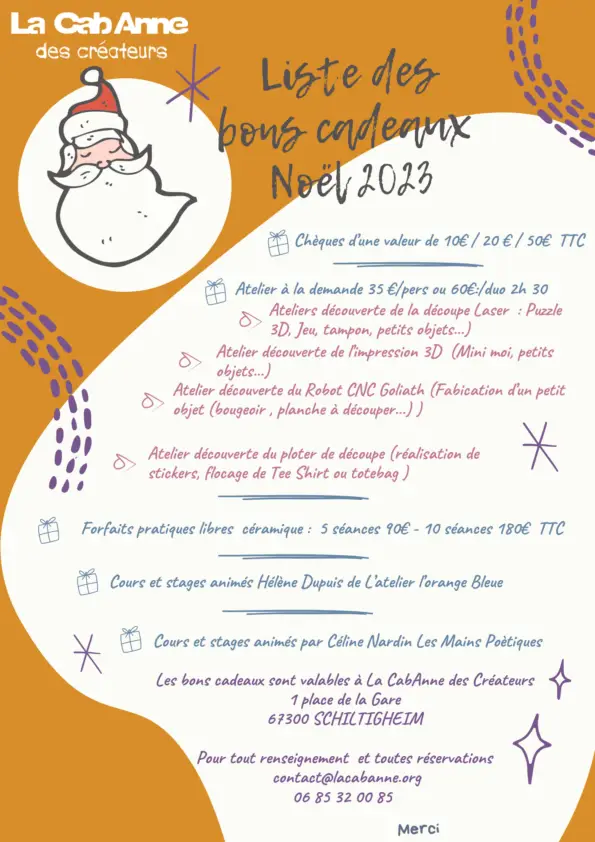 La CabAnne
des créateurs
Liste des
bons cadeaux
Noël 2023
Chèques d'une valeur de 10€ / 20 € / 50€ TTC
Atelier à la demande 35 €/pers ou 60€:/duo 2h 30
Ateliers découverte de la découpe Laser : Puzzle
3D, Jeu, tampon, petits objets...)
Atelier découverte de l'impression 3D (Mini moi, petits
objets...)
Atelier découverte du Robot CNC Goliath (Fabication d'un petit
objet (bougeoir , planche à découper...) )
Atelier découverte du ploter de découpe (réalisation de
stickers, flocage de Tee Shirt ou totebag )
Forfaits pratiques libres céramique : 5 séances 90€ - 10 séances 180€ TTC
Cours et stages animés Hélène Dupuis de L'atelier l'orange Bleue
Cours et stages animés par Céline Nardin Les Mains Poètiques
Les bons cadeaux sont valables à La CabAnne des Créateurs
1 place de la Gare
67300 SCHILTIGHEIM
Pour tout renseignement et toutes réservations
contact@lacabanne.org
06 85 32 00 85
Merci